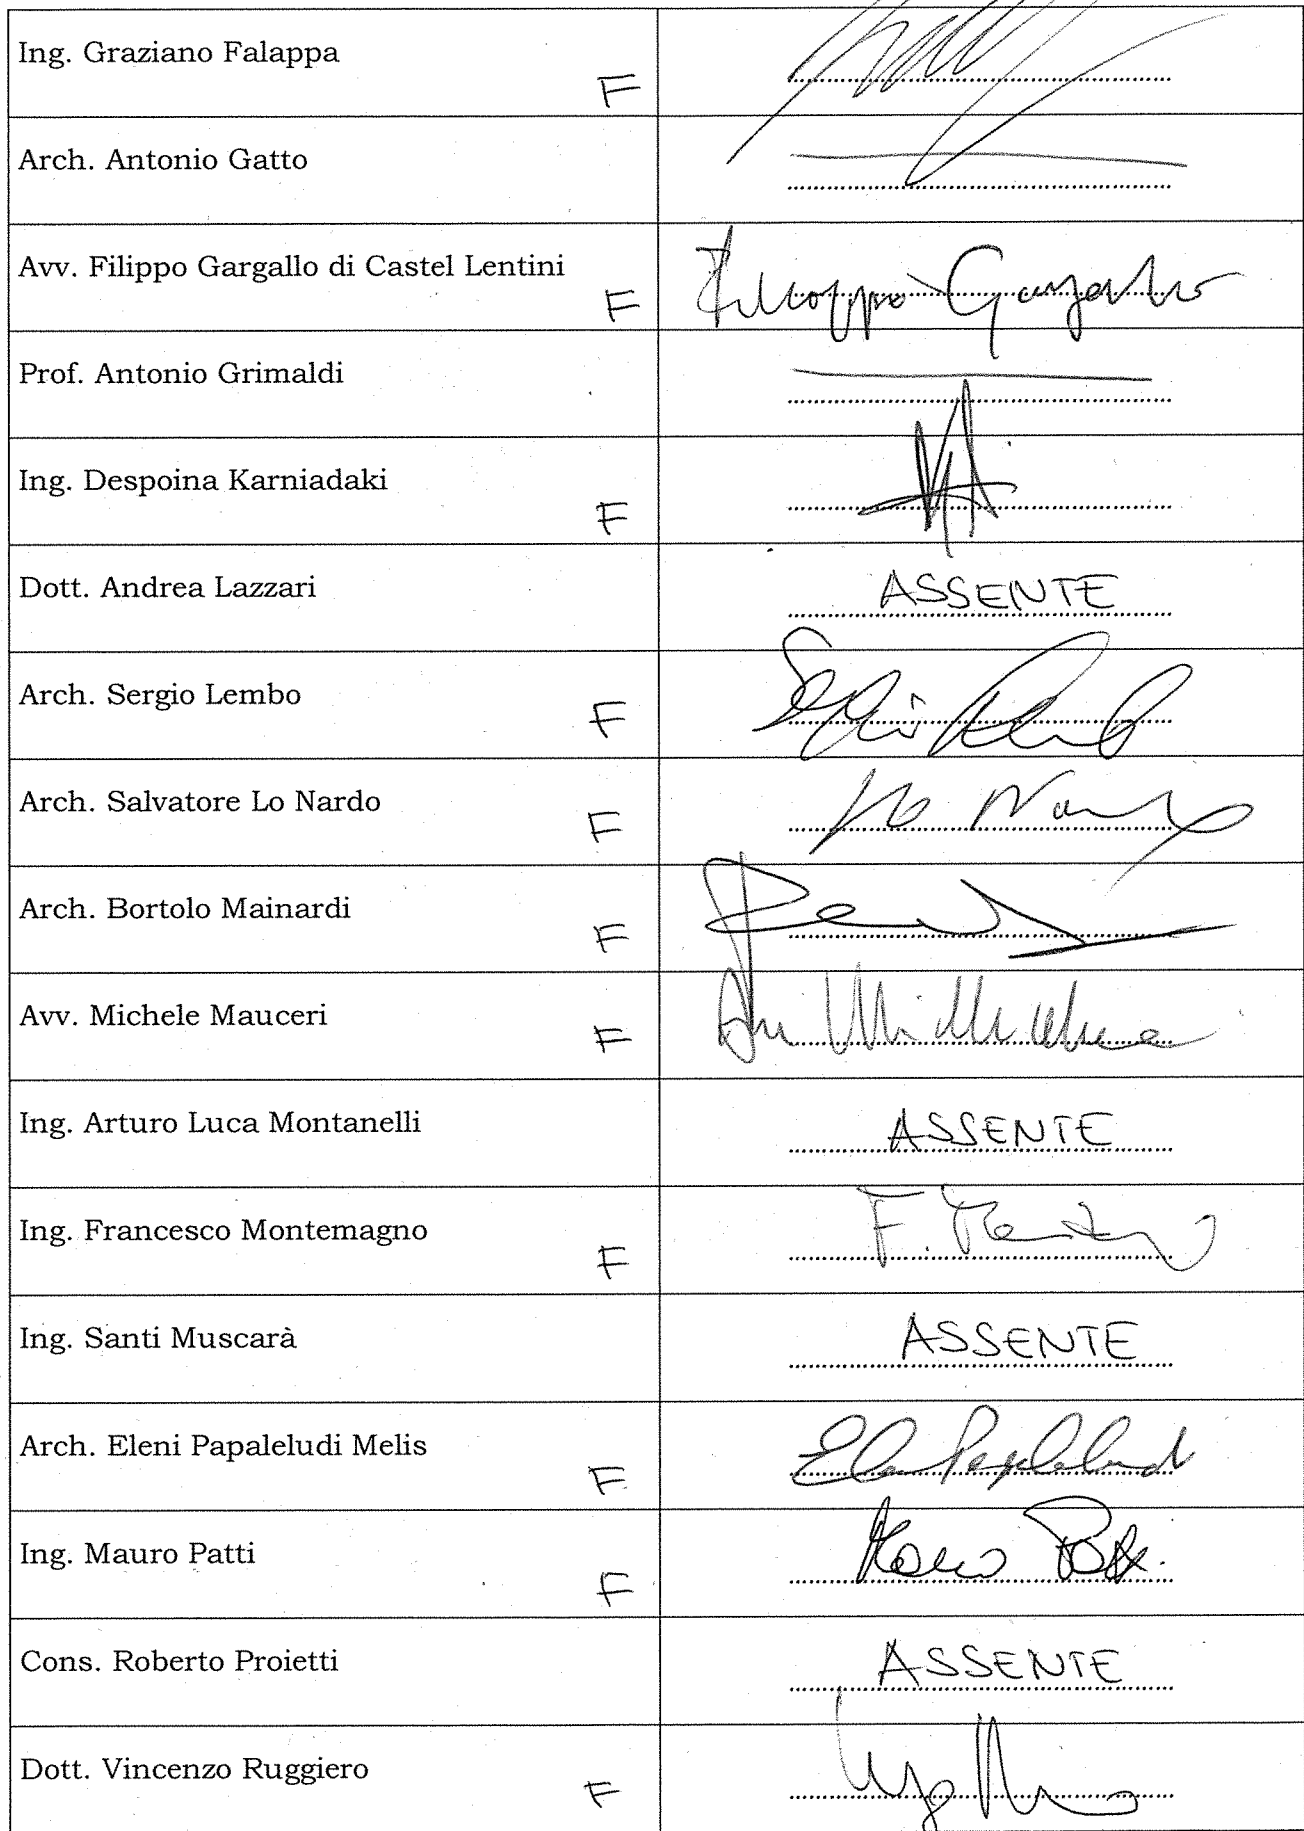 Ing. Graziano Falappa
F
Arch. Antonio Gatto
Avv. Filippo Gargallo di Castel Lentini
F Filippo Gargallo
Prof. Antonio Grimaldi
Ing. Despoina Karniadaki
F
Dott. Andrea Lazzari
ASSENTE
Arch. Sergio Lembo
F Sergio Lembo
Arch. Salvatore Lo Nardo
F Lo Nardo
Arch. Bortolo Mainardi
F
Avv. Michele Mauceri
F
Ing. Arturo Luca Montanelli
ASSENTE
Ing. Francesco Montemagno
F
Ing. Santi Muscarà
ASSENTE
Arch. Eleni Papaleludi Melis
F
Ing. Mauro Patti
F Mauro Patti
Cons. Roberto Proietti
ASSENTE
Dott. Vincenzo Ruggiero
F